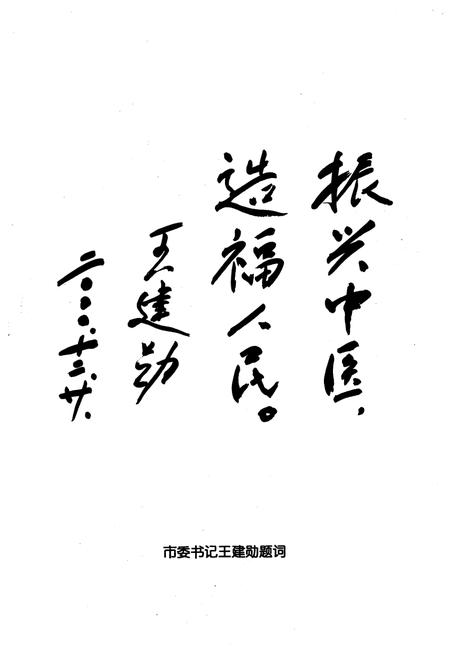 振兴中医，
造福人民。
王建勋
二〇〇〇.十二.廿.
市委书记王建勋题词